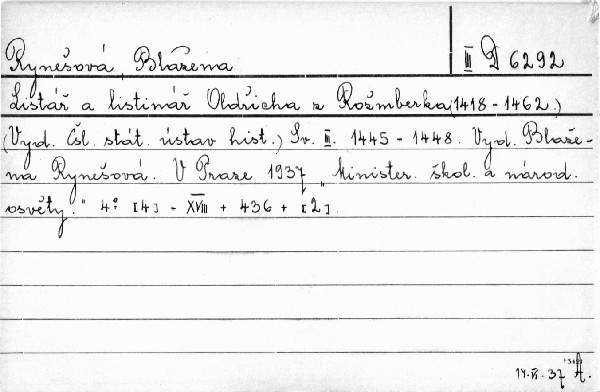 Rynešová, Blažena III D 6292
Listář a listinář Oldřicha z Rožmberka (1418-1462.)
(Vyd. Čsl. stát. ústav hist.) Sv. III. 1445-1448. Vyd. Blaže-
na Rynešová. V Praze 1937 „Minister. škol. a národ.
osvěty." 4° [4] - XVIII + 436 + [2].
14.VI.37 A.